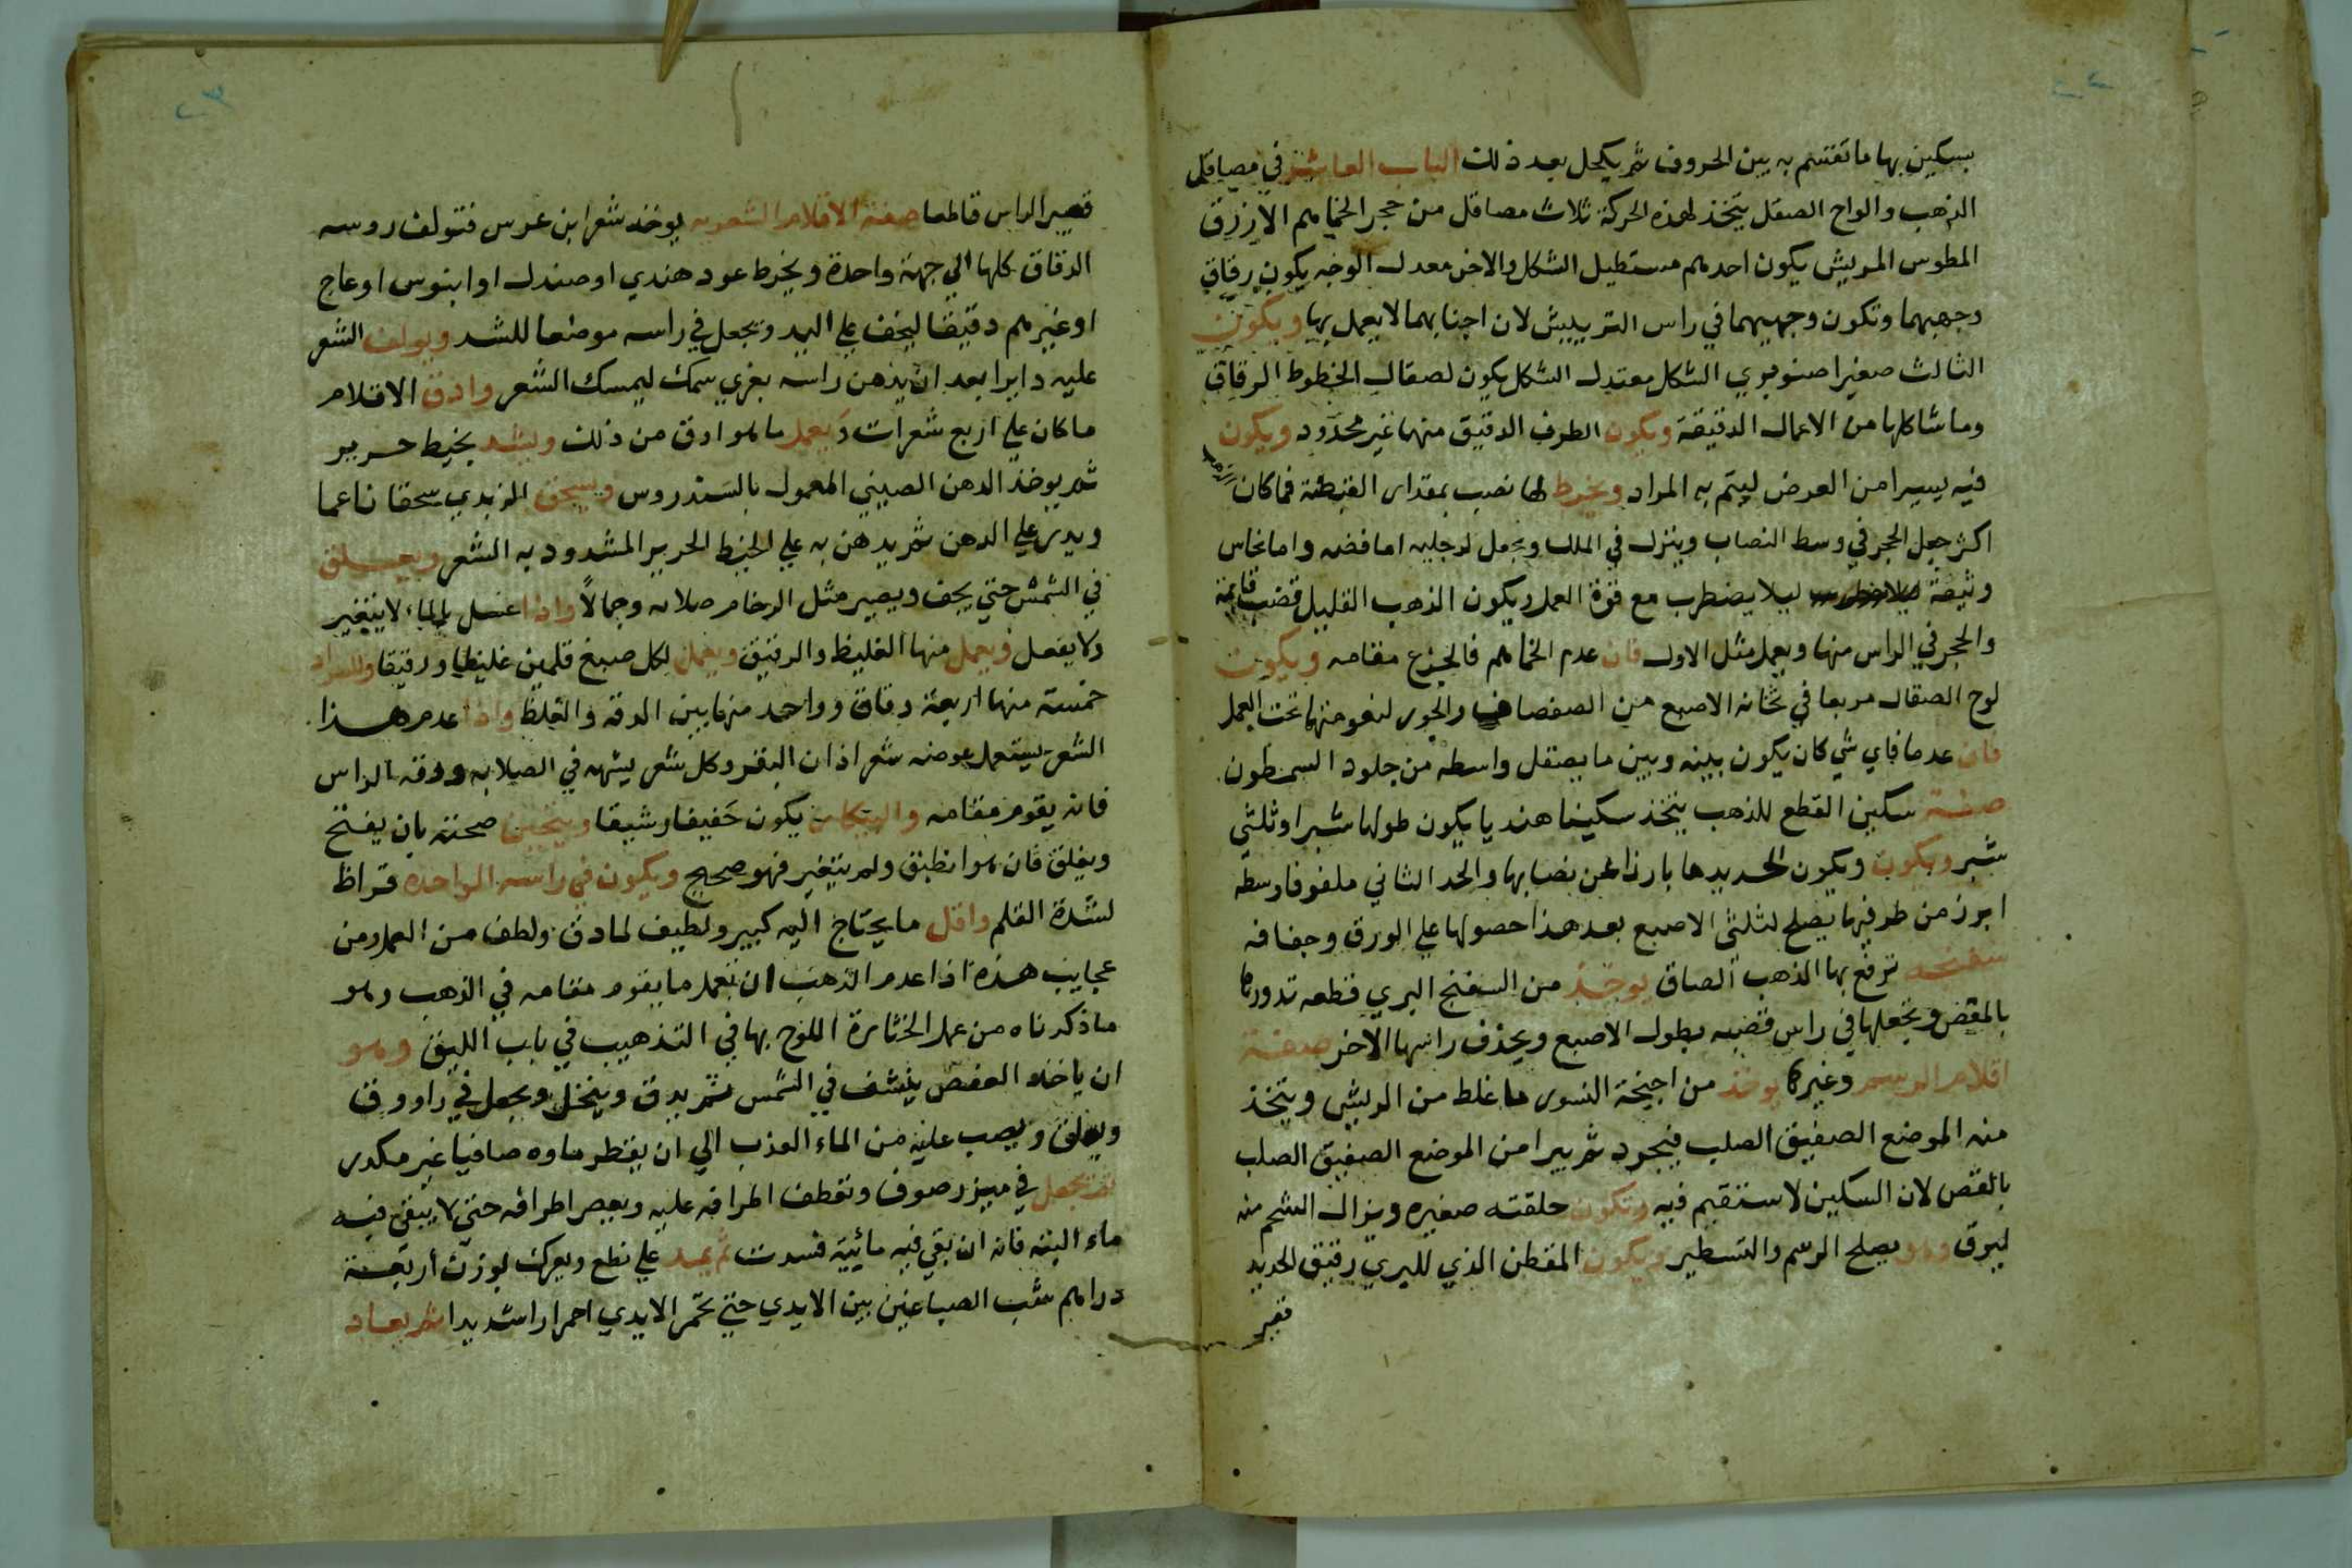 بسكين بها ما تفتتم به بين الحروف ثم يكحل بعد ذلك الباب العاشر في مصاقل
الذهب والواح الصقل يتخذ لهذه الحركة ثلاث مصاقل من حجر الخماهم الازرق
المطوس المريش يكون احدهم مستطيل الشكل والاخر معدل الوجه يكون رقاق
وجهيهما وتكون وجهيهما في راس التربيش لان اجنابهما لا يعمل بها ويكون
الثالث صغيرا صنوبري الشكل معتدل الشكل يكون لصقال الخطوط الرقاق
وما شاكلها من الاعمال الدقيقة ويكون الطرف الدقيق منها غير محدود ويكون
فيه يسيرا من العرض ليتم به المراد ويخرط لها نصب بمقدار القبضة فما كان
اكثر جعل الحجر في وسط النصاب وينزل في الملك ويجعل له جلبه اما فضه واما نحاس
وثيقة ليلا يضطرب مع قوة العمل ويكون الذهب القليل قضب قائمة
والحجر في الراس منها ويعمل مثل الاول فان عدم الخماهم فالجزع مقامه ويكون
لوح الصقال مربعا في ثخانة الاصبع من الصفصاف والجور لنعومتها تحت العمل
فان عدما فاي شي كان يكون بينه وبين ما يصقل واسطه من جلود السمطون
صفة سكين القطع للذهب يتخذ سكينا هنديا يكون طولها شبرا وثلثي
شبر ويكون ويكون الحد يدها بارزا عن نصابها والحد الثاني ملفوفا وسطه
ابرز من طرفيها يصلح لثلثي الاصبع بعد هذا حصولها علي الورق وجفافه
سفنجه ترفع بها الذهب الصاق يوخذ من السفنج البري قطعه تدورها
بالمقص وتجعلها في راس قضبه بطول الاصبع ويحذف راسها الاخر صفة
اقلام الرسم وغيرها يوخذ من اجنحة النسور ما غلظ من الريش ويتخذ
منه الموضع الصفيق الصلب فيجرد ثم يبرا من الموضع الصفيق الصلب
بالمقص لان السكين لا ستقيم فيه وتكون حلقته صغيره ويزال الشحم منه
ليرق وهو يصلح الرسم والتسطير ويكون المقطن الذي للبري رقيق الحديد
قصير
قصير الراس قاطعا صفة الاقلام الشعريه يوخذ شعر ابن عرس فتولف روسه
الدقاق كلها الي جهة واحدة ويخرط عود هندي او صندل او ابنوس او عاج
او غيرهم دقيقا ليخف علي اليد ويجعل في راسه موضعا للشد ويولف الشعر
عليه دايرا بعد ان يدهن راسه بغري سمك ليمسك الشعر وادق الاقلام
ما كان علي اربع شعرات ويعمل ما هو ادق من ذلك ويشد بخيط حرير
ثم يوخذ الدهن الصيني المعمول بالسندروس ويسحق الزبدي سحقا ناعما
ويدر علي الدهن ثم يدهن به علي الخيط الحرير المشدود به الشعر ويعلق
في الشمس حتي يجف ويصير مثل الرخام صلابه وجمالا واذا غسل بالماء لا يتغير
ولا يفصل ويعمل منها الغليظ والرقيق ويعمل لكل صبغ قلمين غليظا ورقيقا وللسواد
خمسة منها اربعة دقاق وواحد منها بين الدقه والغلظ واذا عدم هذا
الشعر يستعمل عوضه شعر اذان البقر وكل شعر يشبهه في الصلابه ودقه الراس
فانه يقوم مقامه والبيكار يكون خفيفا رشيقا ويتحين صحته بان يفتح
ويغلق فان هو انطبق ولم يتغير فهو صحيح ويكون في راسه الواحده قراظ
لشدة القلم واقل ما يحتاج اليه كبير ولطيف لما دق ولطف من العمل ومن
عجايب هذه اذا عدم الذهب ان تعمل ما يقوم مقامه في الذهب وهو
ما ذكرناه من عمل الخثارة اللوح بها في التذهيب في باب الليق وهو
ان ياخذ العفص ينشف في الشمس ثم يدق وينخل ويجعل في راووق
ويعلق ويصب عليه من الماء العذب الي ان يقطر ماوه صافيا غير مكدر
ثم يجعل في ميزر صوف وتقطف اطرافه عليه ويعصر اطرافه حتي لا يبقي فيه
ماء البته فانه ان بقي فيه مائية فسدت ثم يمد علي نطع ويعرك بوزن اربعة
دراهم شب الصباغين بين الايدي حتي تحمر الايدي احمرارا شديدا ثم يعاد